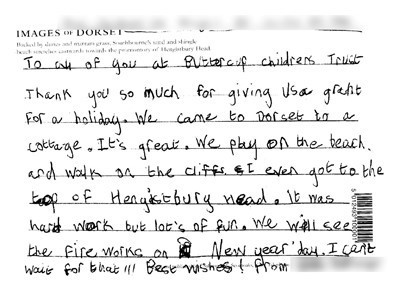 IMAGES OF DORSET
Backed by dunes and marram grass, Southbourne's sand and shingle
beach stretches eastwards towards the promontory of Hengistbury Head
To all of you at Buttercup childrens Trust
Thank you so much for giving us a grant
For a holiday. We came to Dorset to a
cottage. It's great. We play on the beach.
and walk on the cliffs. I even got to the
top of Hengistbury Head. It was
hard work but lot's of fun. We will see
the fire works on New year' day. I cant
wait for that!!! Best wishes! From